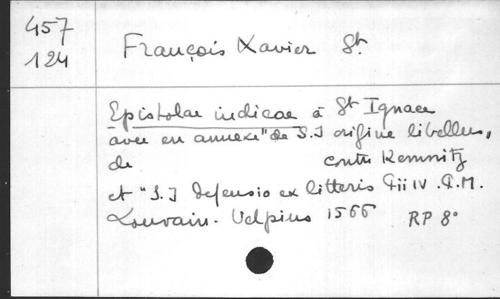 457
124
François Xavier St.
Epistolae indicae à St Ignace
avec en annexe "de S.J origine libellus,
de contre Kemnitz
et "S.J Defensio ex litteris Pii IV. P.M.
Louvain. Velpius 1566 RP 8°